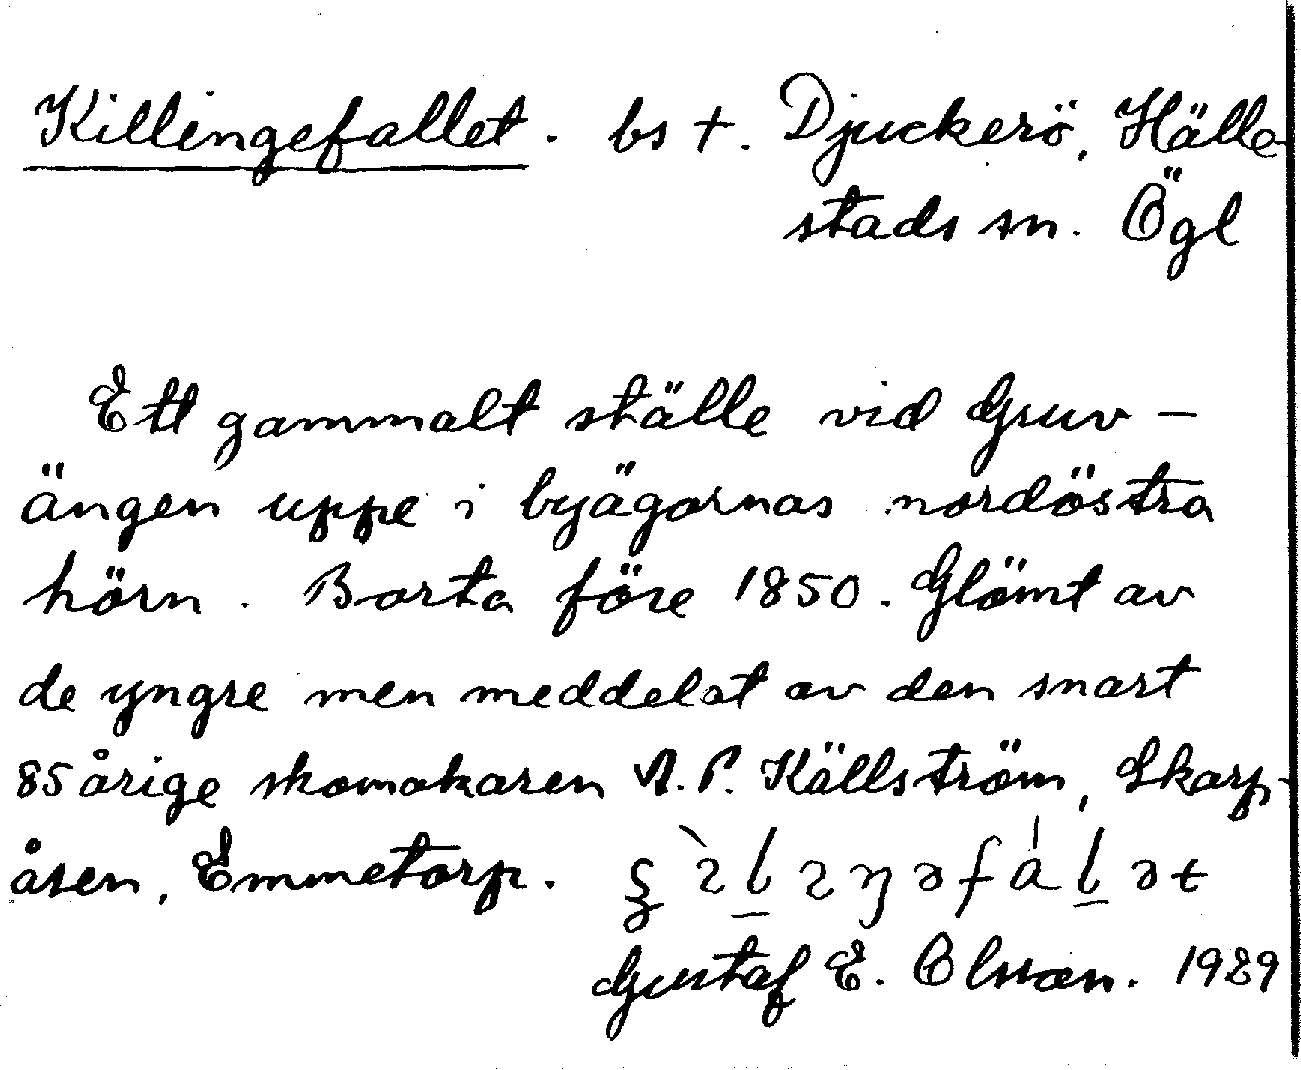 Killingefallet. bs †. Djuckerö, Hälle-
stads sn. Ögl
Ett gammalt ställe vid Gruv-
ängen uppe i byägornas nordöstra
hörn. Borta före 1850. Glömt av
de yngre men meddelat av den snart
85årige skomakaren A. P. Källström, Skarp-
åsen, Emmetorp.
Gustaf E. Olsson. 1929